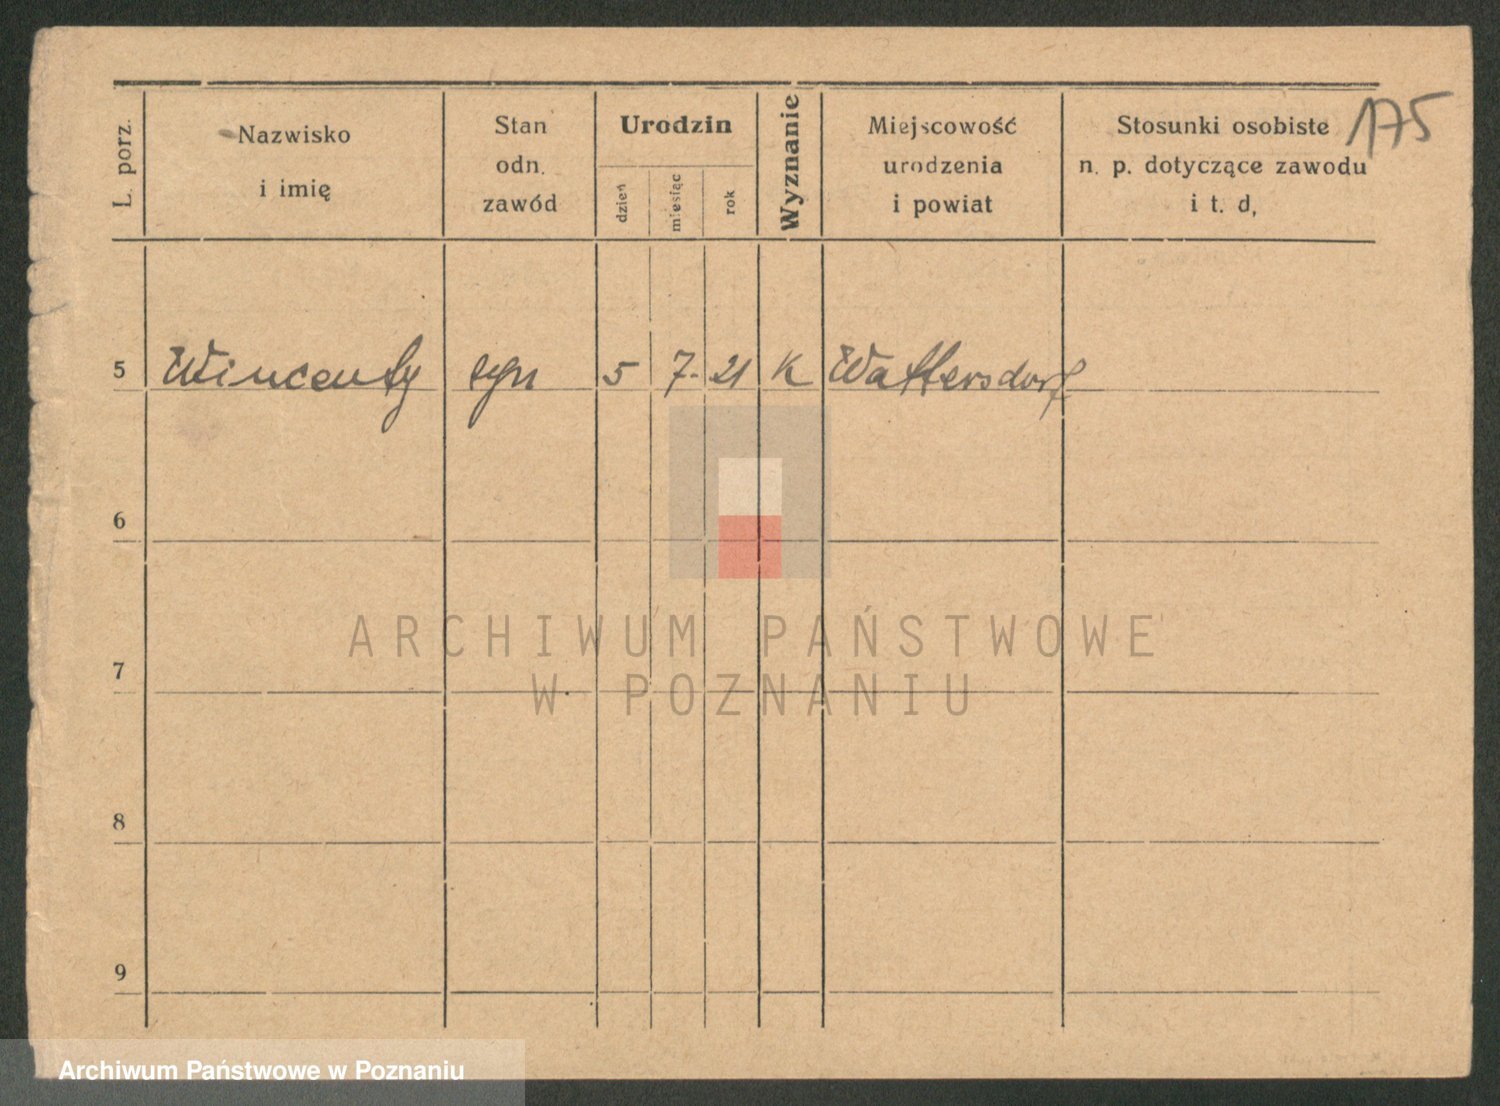 175
L. porz.
Nazwisko
i imię
Stan
odn.
zawód
Urodzin
dzień
miesiąc
rok
Wyznanie
Miejscowość
urodzenia
i powiat
Stosunki osobiste
n. p. dotyczące zawodu
i t. d,
5 Wincenty syn 5 7. 21 K Wattersdorf
6
7
8
9
ARCHIWUM PAŃSTWOWE
W POZNANIU
Archiwum Państwowe w Poznaniu